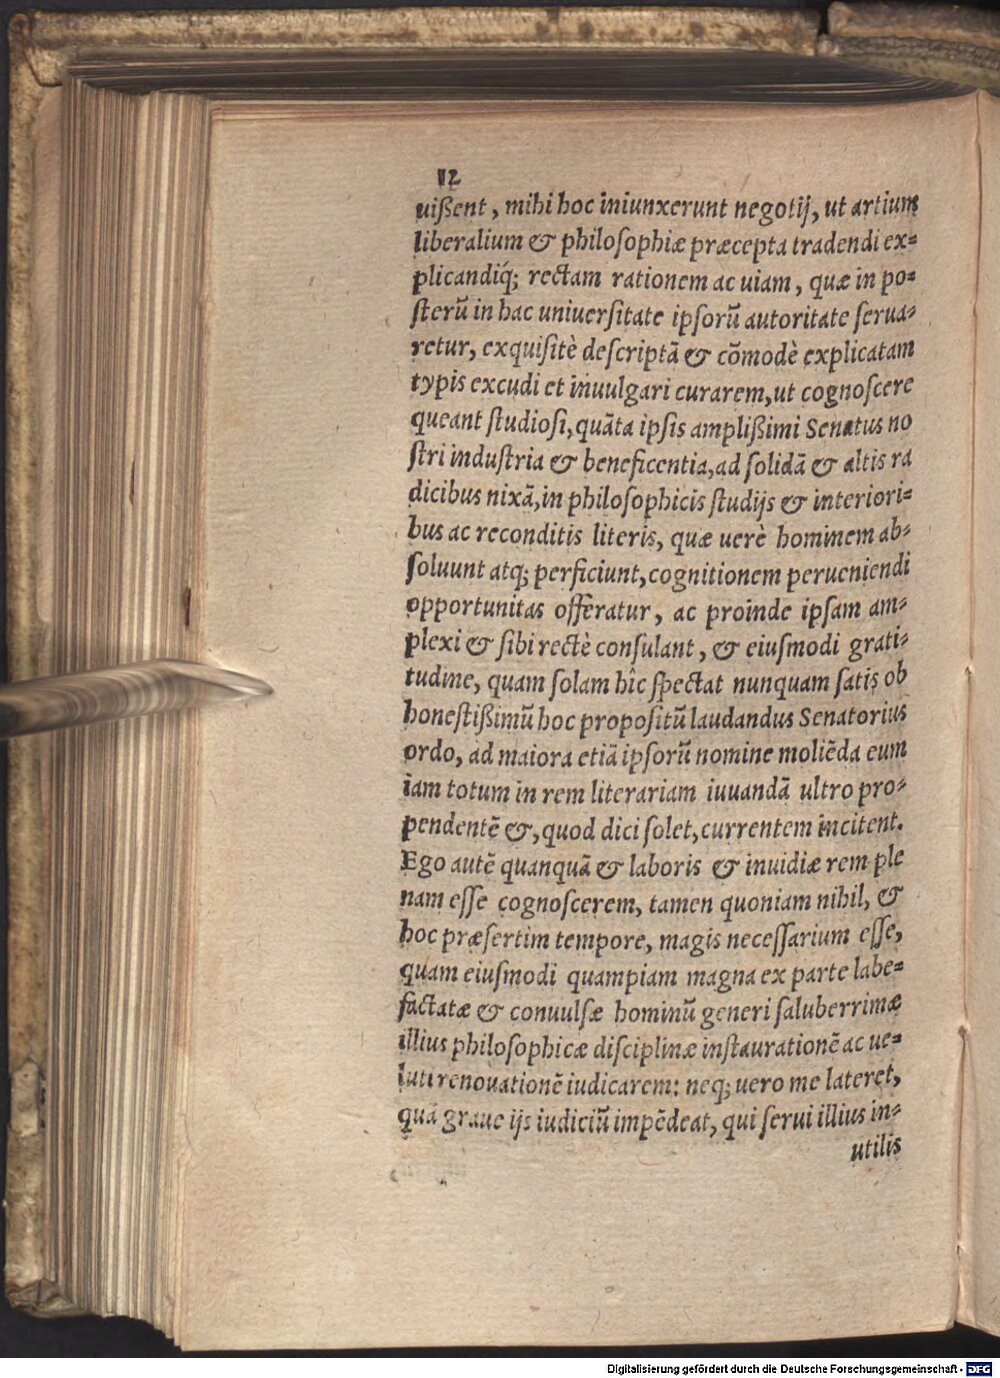 12
uißent, mihi hoc iniunxerunt negotij, ut artium
liberalium & philoſophiæ præcepta tradendi ex=
plicandiq́; rectam rationem ac uiam, quæ in po=
ſterũ in hac uniuerſitate ipſorũ autoritate ſerua=
retur, exquiſitè deſcriptã & cõmodè explicatam
typis excudi et inuulgari curarem, ut cognoſcere
queant ſtudioſi, quãta ipſis amplißimi Senatus no
ſtri induſtria & beneficentia, ad ſolidã & altis ra
dicibus nixã, in philoſophicis ſtudijs & interiori=
bus ac reconditis literis, quæ uerè hominem ab=
ſoluunt atq; perficiunt, cognitionem perueniendi
opportunitas offeratur, ac proinde ipſam am=
plexi & ſibi rectè conſulant, & eiuſmodi grati=
tudine, quam ſolam hîc ſpectat nunquam ſatis ob
honeſtißimũ hoc propoſitũ laudandus Senatorius
ordo, ad maiora etiã ipſorũ nomine moliẽda eum
iam totum in rem literariam iuuandã ultro pro=
pendentẽ &, quod dici ſolet, currentem incitent.
Ego autẽ quanquã & laboris & inuidiæ rem ple
nam eſſe cognoſcerem, tamen quoniam nihil, &
hoc præſertim tempore, magis neceſſarium eſſe,
quam eiuſmodi quampiam magna ex parte labe=
factatæ & conuulſæ hominũ generi ſaluberrimæ
illius philoſophicæ diſciplinæ inſtaurationẽ ac ue=
luti renouationẽ iudicarem: neq; uero me lateret,
quã graue ijs iudiciũ impẽdeat, qui ſerui illius in=
utilis
Digitalisierung gefördert durch die Deutsche Forschungsgemeinschaft - DFG